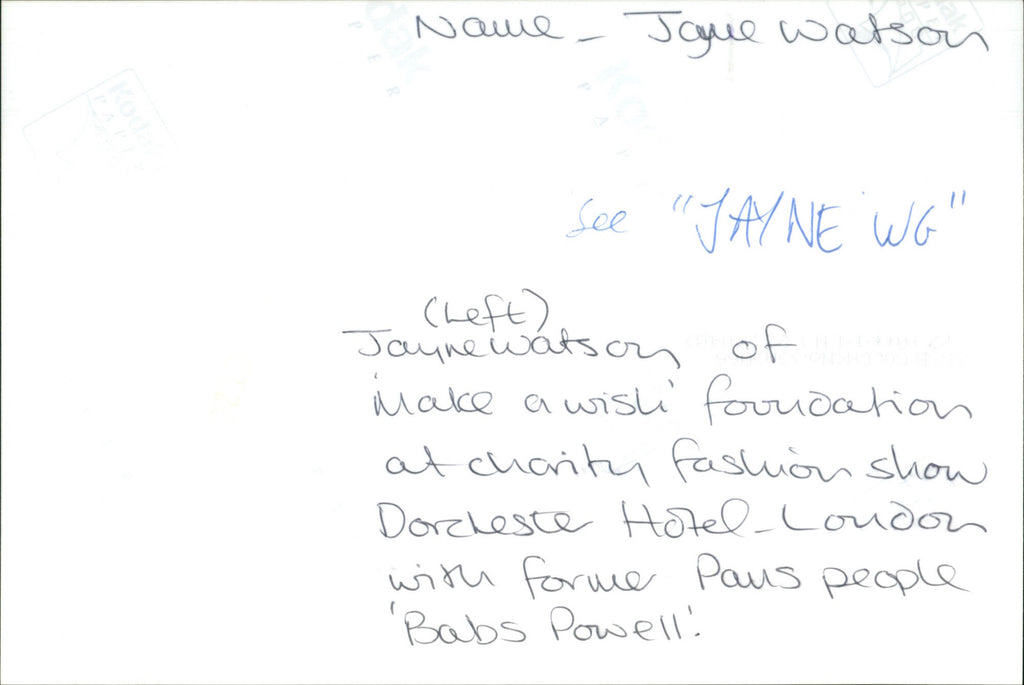 Name - Jayne Watson
See "JAYNE WG"
(Left)
Jayne Watson of
'Make a wish' foundation
at charity fashion show
Dorchester Hotel - London
with former Pans people
'Babs Powell'.
Kodak
Kodak